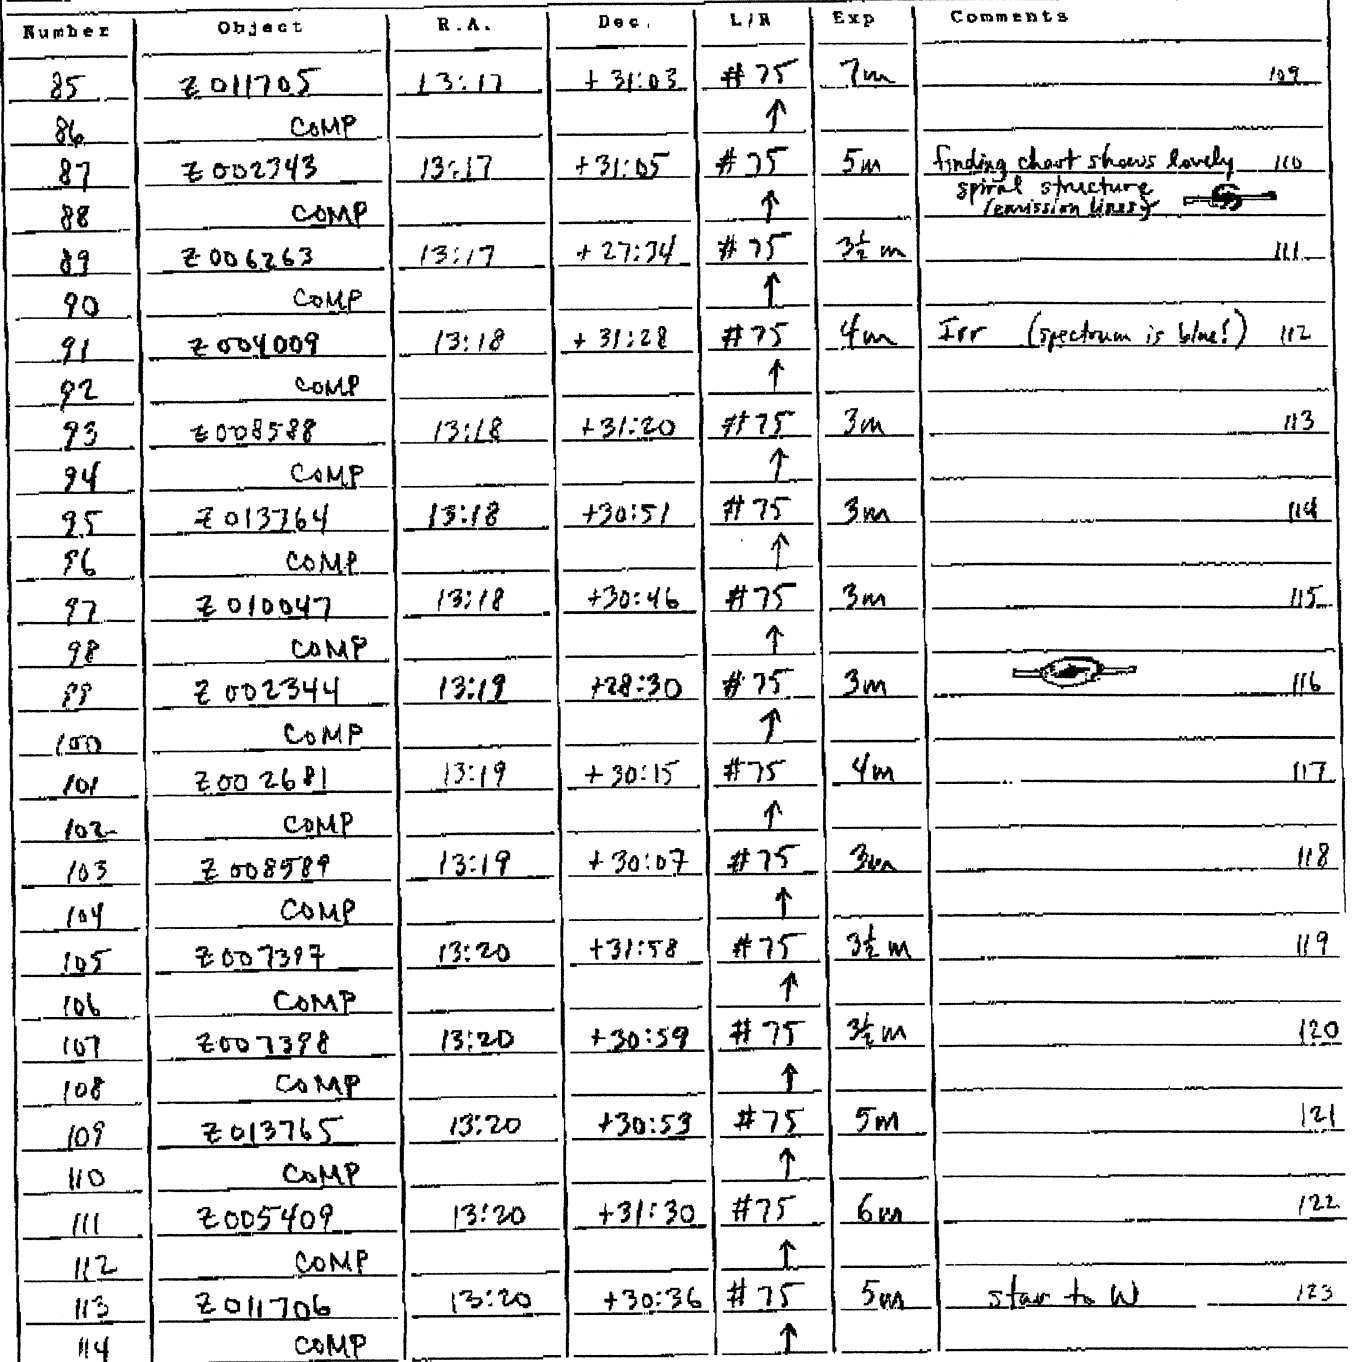 Number Object R.A. Dec. L/R Exp Comments
85 Z011705 13:17 +31:03 #75 7m 109
86 COMP ↑
87 Z002343 13:17 +31:05 #75 5m finding chart shows lovely 110
spiral structure
88 COMP ↑ (emission lines?)
89 Z006263 13:17 +27:34 #75 3½m 111
90 COMP ↑
91 Z004009 13:18 +31:28 #75 4m Irr (spectrum is blue!) 112
92 COMP ↑
93 Z008588 13:18 +31:20 #75 3m 113
94 COMP ↑
95 Z013764 13:18 +30:51 #75 3m 114
96 COMP ↑
97 Z010047 13:18 +30:46 #75 3m 115
98 COMP ↑
99 Z002344 13:19 +28:30 #75 3m 116
100 COMP ↑
101 Z002681 13:19 +30:15 #75 4m 117
102 COMP ↑
103 Z008589 13:19 +30:07 #75 3m 118
104 COMP ↑
105 Z007397 13:20 +31:58 #75 3½m 119
106 COMP ↑
107 Z007398 13:20 +30:59 #75 3½m 120
108 COMP ↑
109 Z013765 13:20 +30:53 #75 5m 121
110 COMP ↑
111 Z005409 13:20 +31:30 #75 6m 122
112 COMP ↑
113 Z011706 13:20 +30:36 #75 5m star to W 123
114 COMP ↑